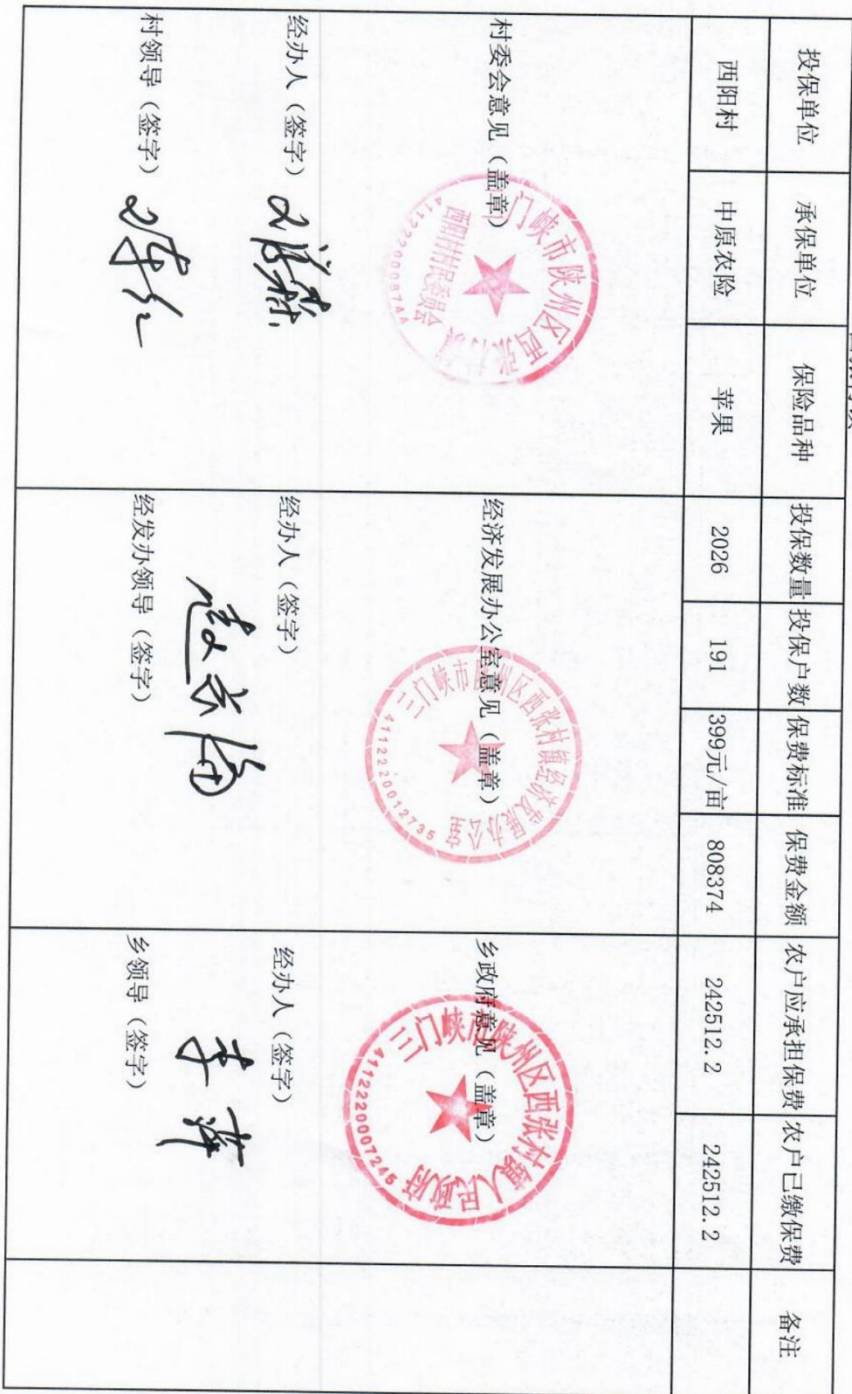 投保单位 承保单位 保险品种 投保数量 投保户数 保费标准 保费金额 农户应承担保费 农户已缴保费 备注
西阳村 中原农险 苹果 2026 191 399元/亩 808374 242512.2 242512.2
村委会意见（盖章）
三门峡市陕州区西张村镇
西阳村村民委员会
经办人（签字）
村领导（签字）
经济发展办公室意见（盖章）
三门峡市陕州区西张村镇经济发展办公室
4112220012735
经办人（签字）
经发办领导（签字）
乡政府意见（盖章）
三门峡市陕州区西张村镇人民政府
4112220007245
经办人（签字）
乡领导（签字）